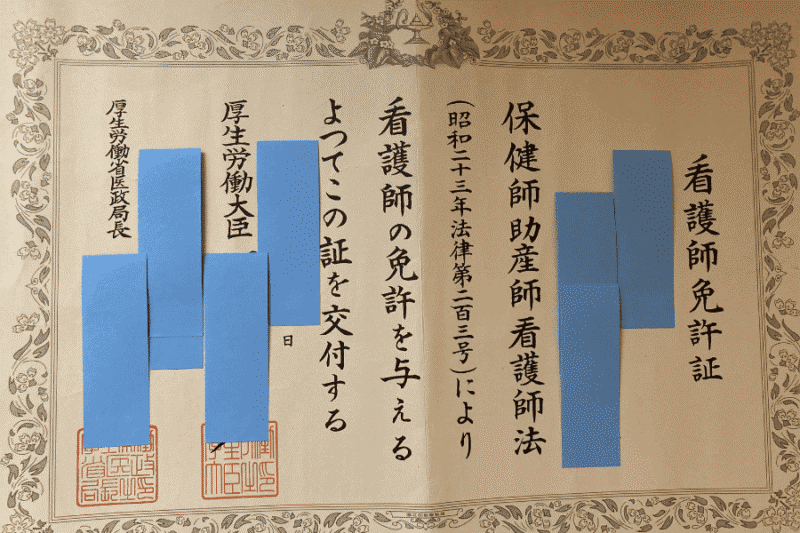 看護師免許証
保健師助産師看護師法
(昭和二十三年法律第二百三号)により
看護師の免許を与える
よつてこの証を交付する
日
厚生労働大臣
厚生労働省医政局長